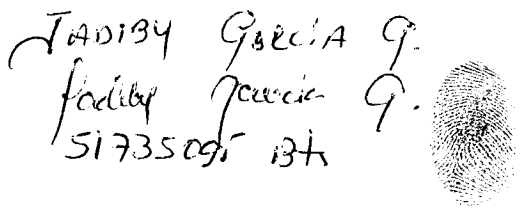 JADIBY GARCIA G.
Jadiby Garcia G.
51735095 Bta